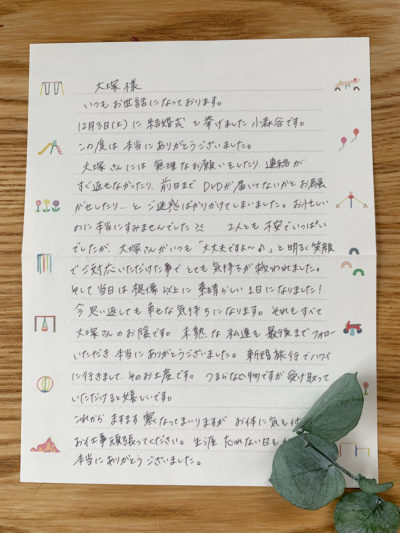 大塚様
いつもお世話になっております。
12月3日(土)に結婚式を挙げました小森谷です。
この度は本当にありがとうございました。
大塚さんには無理なお願いをしたり、連絡が
すぐ返せなかったり、前日までDVDが届いてないかとお騒
がせしたり…とご迷惑ばかりかけてしまいました。お忙しい
のに本当にすみませんでした 2人とも不安でいっぱい
でしたが、大塚さんがいつも「大丈夫ですよ〜♪」と明るく笑顔
でご対応いただけた事でとても気持ちが救われました。
そして当日は想像以上に素晴らしい1日になりました!
今思い返しても幸せな気持ちになります。それもすべて
大塚さんのお陰です。未熟な私達を最後までフォロー
いただき本当にありがとうございました。新婚旅行でハワイ
に行きまして、そのお土産です。つまらない物ですが受け取って
いただけると嬉しいです。
これからますます寒くなってまいりますが、お体に気を付
お仕事頑張ってください。生涯忘れない日を
本当にありがとうございました。